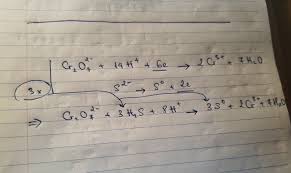 Cr₂O₇²⁻ + 14H⁺ + 6e → 2Cr³⁺ + 7H₂O
3x S²⁻ → S⁰ + 2e
⇒ Cr₂O₇²⁻ + 3H₂S + 8H⁺ → 3S⁰ + 2Cr³⁺ + 7H₂O